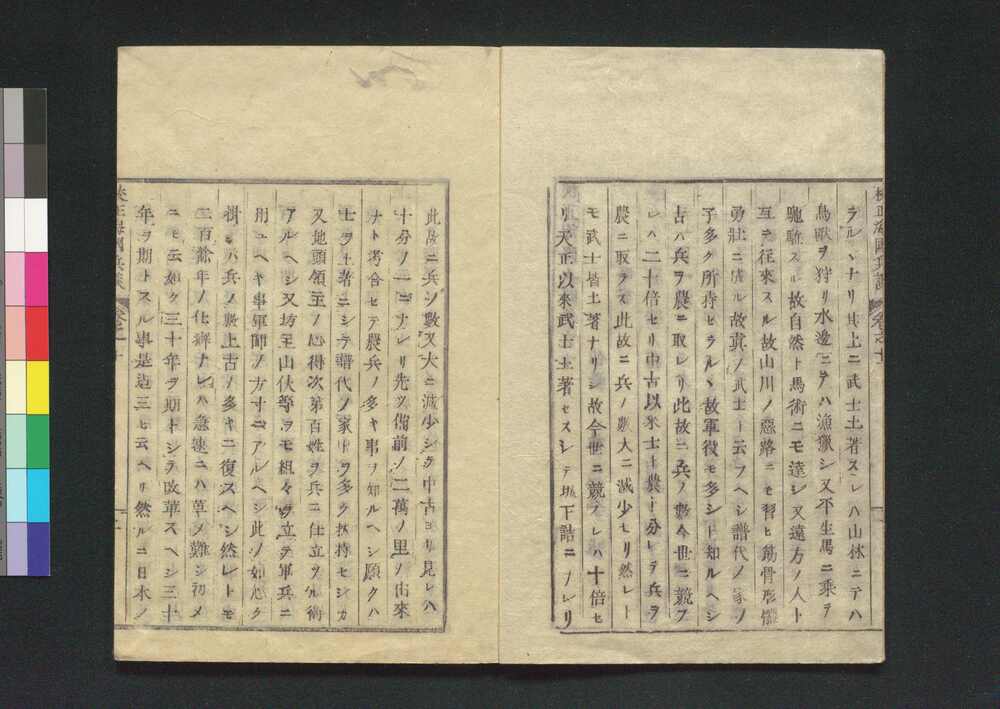 ラルヽナリ其上ニ武士土著スレハ山林ニテハ
鳥獣ヲ狩リ水邊ニテハ漁獵シ又平生馬ニ乗テ
馳驅スル故自然ト馬術ニモ達シ又遠方ノ人ト
互ニ往來スル故山川ノ惡路ニモ習ヒ筋骨形體
勇壯ニ成ル故真ノ武士ト云フヘシ譜代ノ家ノ
子多ク所持セラルヽ故軍役モ多シト知ルヘシ
古ハ兵ヲ農ニ取レリ此故ニ兵ノ數今世ニ競フ
レハ二十倍セリ中古以來士ト農ト分レテ兵ヲ
農ニ取ラス此故ニ兵ノ數大ニ減少セリ然レト
モ武士皆土著ナリシ故今世ニ競フレハ十倍セ
リ天正以來武士土著セスシテ城下詰ニナレリ
此故ニ兵ノ數又大ニ減少シテ中古ヨリ見レハ
十分ノ一ニナレリ先ツ備前ノ二萬ノ里ノ出來
ナト考合セテ農兵ノ多キ事ヲ知ルヘシ願クハ
士ヲ土著ニシテ譜代ノ家中ヲ多ク扶持セシカ
又地頭領主ノ心得次第百姓ヲ兵ニ仕立ツル術
アルヘシ又坊主山伏等ヲモ組々ヲ立テ軍兵ニ
用ユヘキ事軍師ノ方寸ニアルヘシ此ノ如心ク
掛レハ兵ノ數上古ノ多キニ復スヘシ然レトモ
二百餘年ノ仕癖ナレハ急速ニハ革メ難シ初メ
ニモ云如ク三十年ヲ期トシテ改革スヘシ三十
年ヲ期トスル事是迄三ヒ云ヘリ然ルニ日本ノ